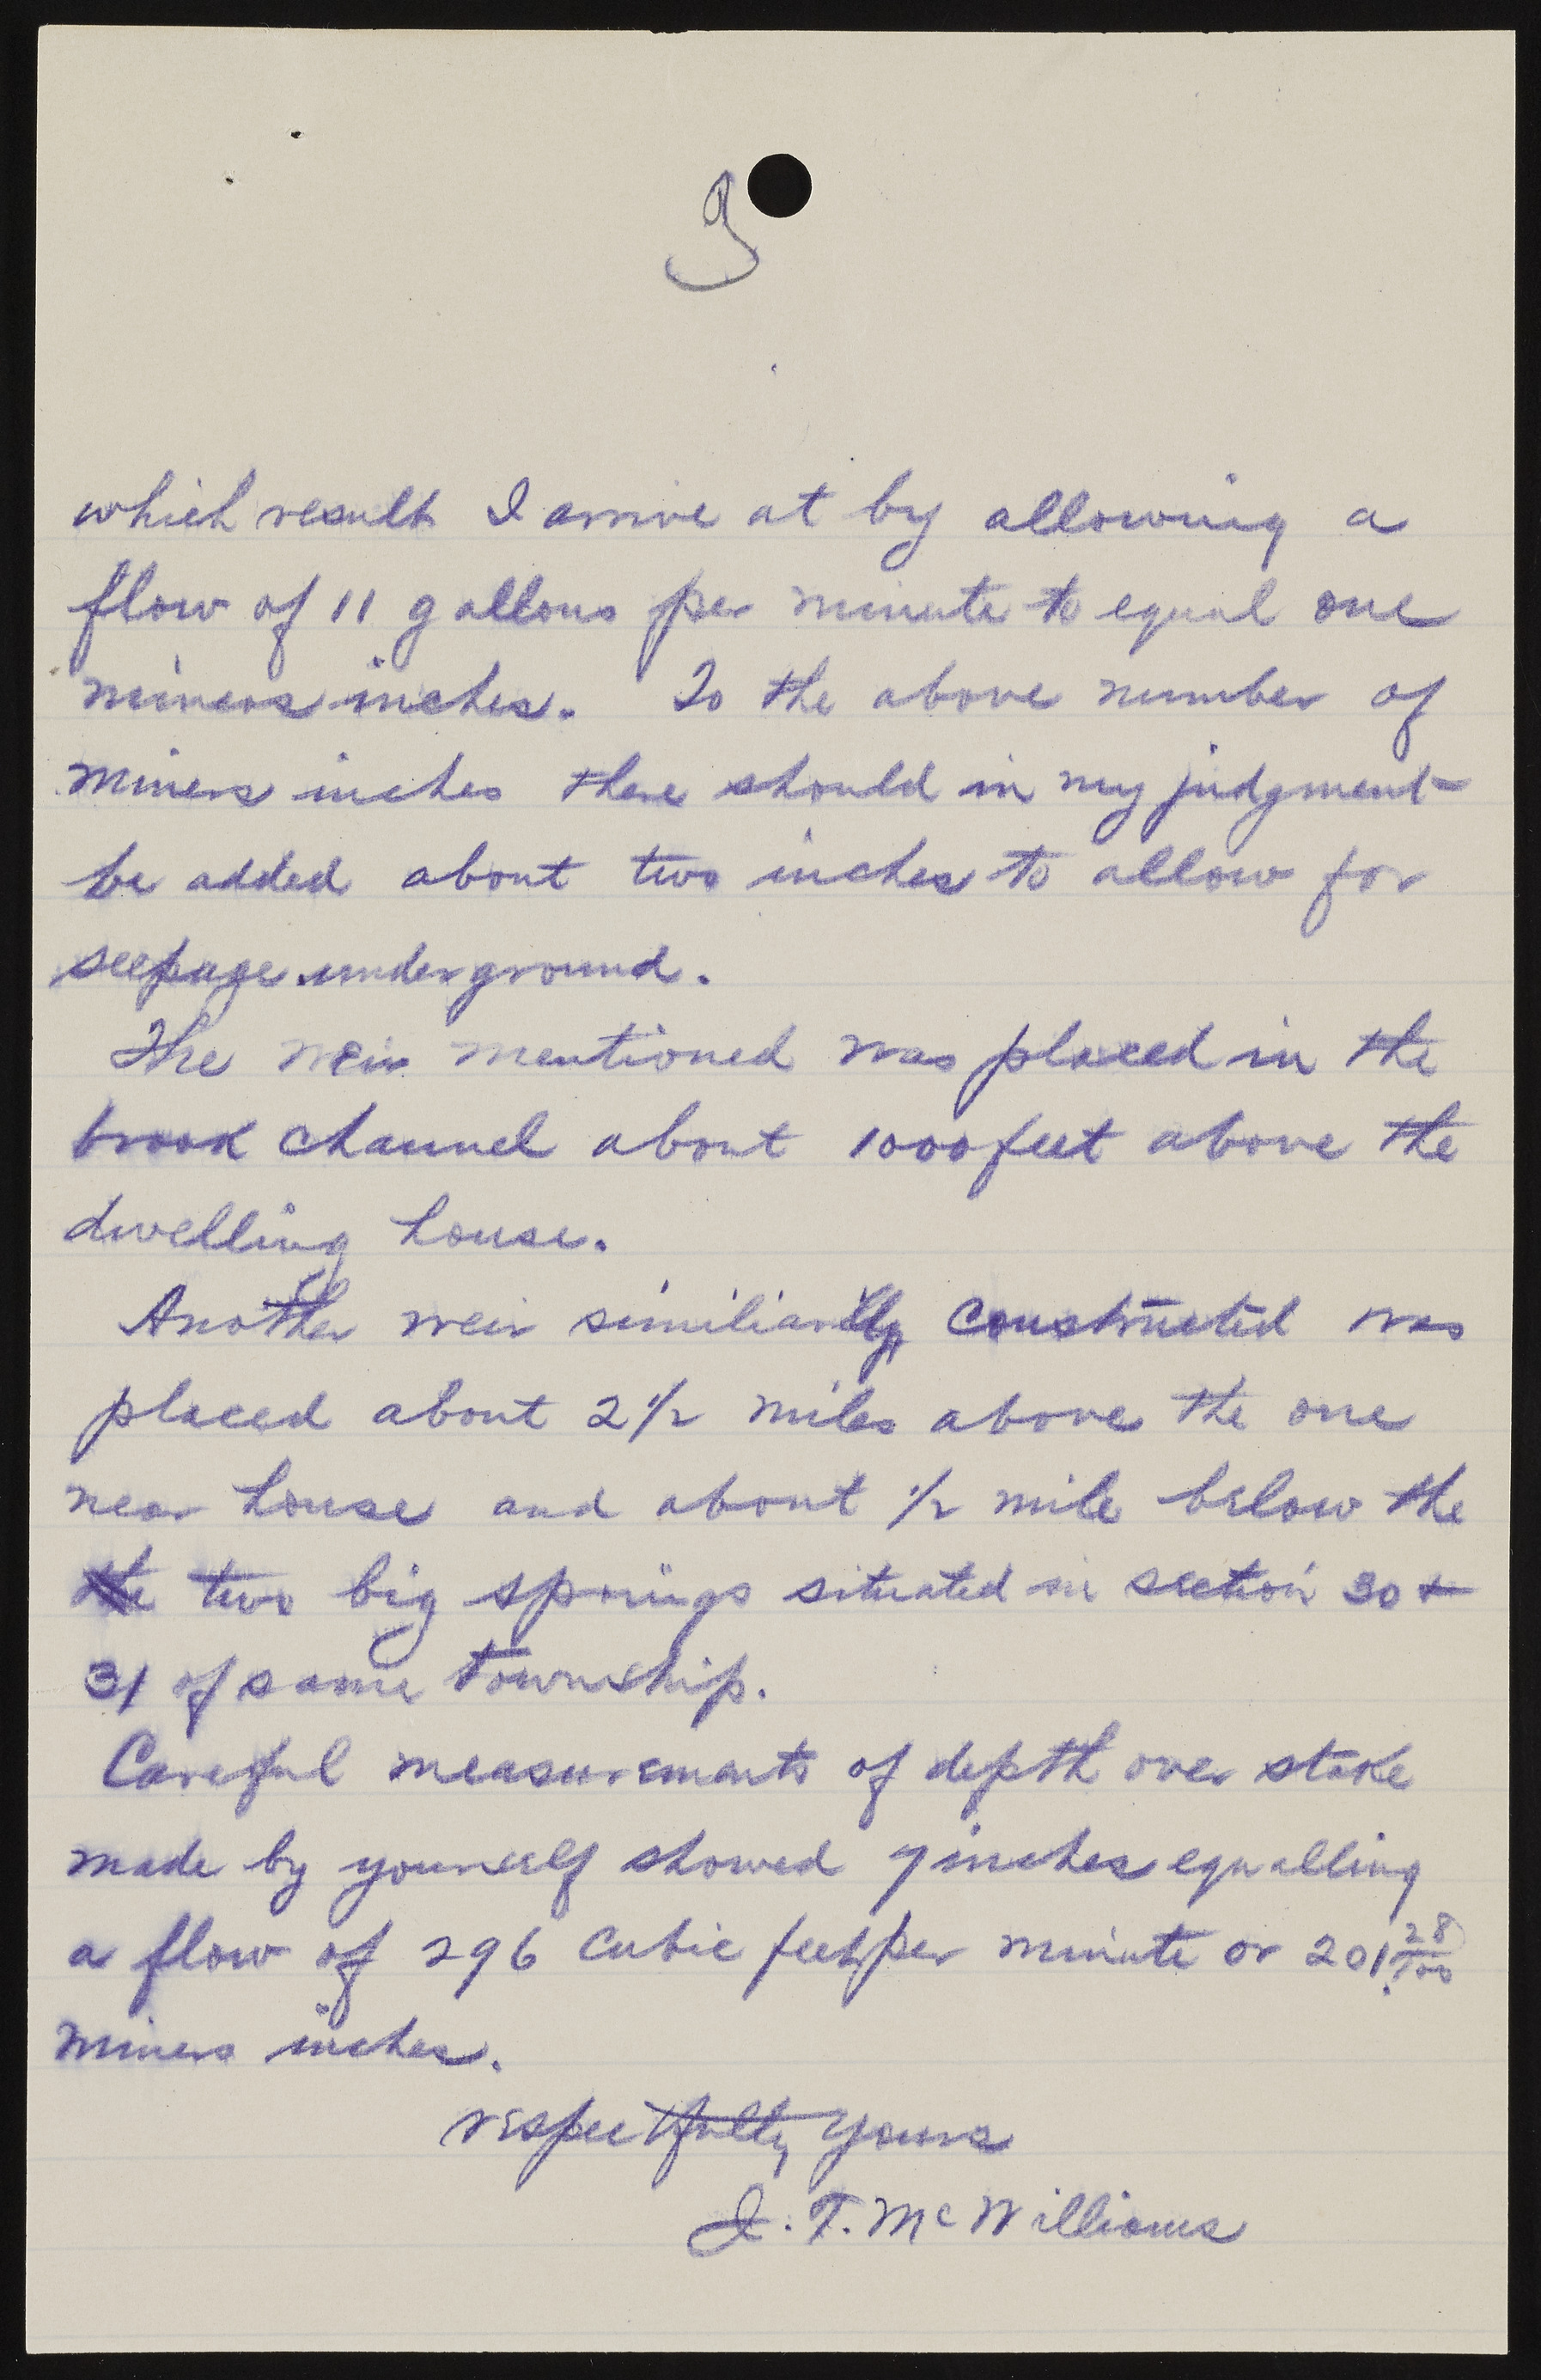 9
which result I arrive at by allowing a
flow of 11 gallons per minute to equal one
miners inches. To the above number of
miners inches there should in my judgment
be added about two inches to allow for
seepage underground.
The weir mentioned was placed in the
brook channel about 1000 feet above the
dwelling house.
Another weir similiarlly constructed was
placed about 2 1/2 miles above the one
near house and about 1/2 mile below the
the two big springs situated in section 30 &
31 of same township.
Careful measurements of depth over stake
made by yourself showed 7 inches equalling
a flow of 296 cubic feet per minute or 201 28/100
miners inches.
respectfully yours
J. T. McWilliams